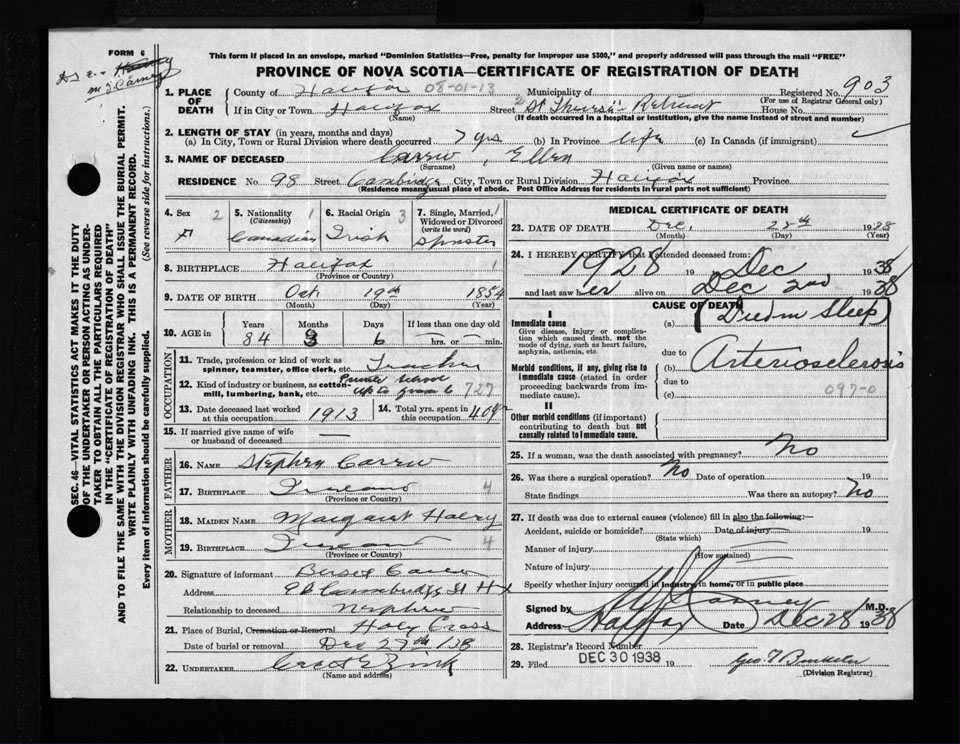 FORM 6
This form if placed in an envelope, marked "Dominion Statistics—Free, penalty for improper use $300," and properly addressed will pass through the mail "FREE"
PROVINCE OF NOVA SCOTIA—CERTIFICATE OF REGISTRATION OF DEATH
1. PLACE OF DEATH
County of Halifax 08-01-13 Municipality of Registered No. 903
(For use of Registrar General only)
If in City or Town Halifax Street St Theresa's Retreat House No.
(Name) (If death occurred in a hospital or institution, give the name instead of street and number)
2. LENGTH OF STAY (in years, months and days)
(a) In City, Town or Rural Division where death occurred 7 yrs (b) In Province life (c) In Canada (if immigrant)
3. NAME OF DECEASED Carew, Ellen
(Surname) (Given name or names)
RESIDENCE No. 98 Street Cambridge City, Town or Rural Division Halifax Province
(Residence means usual place of abode. Post Office Address for residents in rural parts not sufficient)
4. Sex 2 F
5. Nationality (Citizenship) 1 Canadian
6. Racial Origin 3 Irish
7. Single, Married, Widowed or Divorced (write the word) 1 Spinster
8. BIRTHPLACE Halifax 1
(Province or Country)
9. DATE OF BIRTH Oct 19th 1854
(Month) (Day) (Year)
10. AGE in Years Months Days If less than one day old
84 3 6 hrs. or min.
OCCUPATION
11. Trade, profession or kind of work as spinner, teamster, office clerk, etc. Teacher
12. Kind of industry or business, as cotton-mill, lumbering, bank, etc. Private School up to grade 6 727
13. Date deceased last worked at this occupation 1913
14. Total yrs. spent in this occupation 40
15. If married give name of wife or husband of deceased —
FATHER
16. NAME Stephen Carew
17. BIRTHPLACE Ireland 4
(Province or Country)
MOTHER
18. MAIDEN NAME Margaret
19. BIRTHPLACE Ireland 4
(Province or Country)
20. Signature of informant Carew
Address 98 Cambridge St Hx
Relationship to deceased Nephew
21. Place of Burial, Cremation or Removal Holy Cross
Date of burial or removal Dec 27th 138
22. UNDERTAKER Zink
(Name and address)
MEDICAL CERTIFICATE OF DEATH
23. DATE OF DEATH Dec. 25th 1938
(Month) (Day) (Year)
24. I HEREBY CERTIFY that I attended deceased from:
1928 to Dec 1938
and last saw her alive on Dec 2nd 1938
CAUSE OF DEATH
I
Immediate cause
Give disease, injury or complication which caused death, not the mode of dying, such as heart failure, asphyxia, asthenia, etc.
(a) (Died in Sleep)
due to
Morbid conditions, if any, giving rise to immediate cause (stated in order proceeding backwards from immediate cause)
(b) Arteriosclerosis
due to 097-0
(c)
II
Other morbid conditions (if important) contributing to death but not causally related to immediate cause.
25. If a woman, was the death associated with pregnancy? No
26. Was there a surgical operation? No Date of operation 19
State findings Was there an autopsy? No
27. If death was due to external causes (violence) fill in also the following:—
Accident, suicide or homicide? Date of injury 19
(State which)
Manner of injury
(How sustained)
Nature of injury
Specify whether injury occurred in industry, in home, or in public place
Signed by M.D.
Address Halifax Date Dec 28 1938
28. Registrar's Record Number
29. Filed DEC 30 1938 19
(Division Registrar)
SEC. 46—VITAL STATISTICS ACT MAKES IT THE DUTY OF THE UNDERTAKER OR PERSON ACTING AS UNDERTAKER TO OBTAIN ALL THE PARTICULARS REQUIRED IN THE "CERTIFICATE OF REGISTRATION OF DEATH" AND TO FILE THE SAME WITH THE DIVISION REGISTRAR WHO SHALL ISSUE THE BURIAL PERMIT.
WRITE PLAINLY WITH UNFADING INK. THIS IS A PERMANENT RECORD.
Every item of information should be carefully supplied. (See reverse side for instructions.)